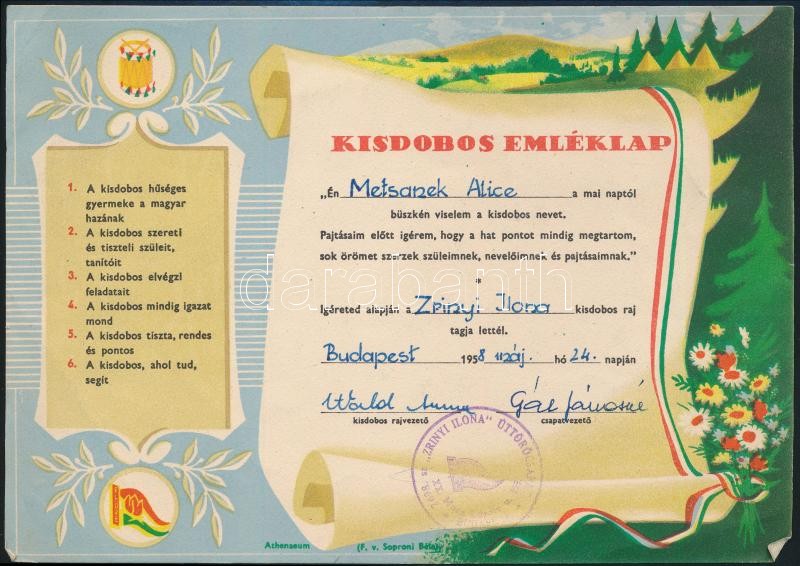 KISDOBOS EMLÉKLAP
„Én Metsanek Alice a mai naptól
büszkén viselem a kisdobos nevet.
Pajtásaim előtt igérem, hogy a hat pontot mindig megtartom,
sok örömet szerzek szüleimnek, nevelőimnek és pajtásaimnak."
*
Igéreted alapján a Zrinyi Ilona kisdobos raj
tagja lettél.
Budapest 1958 máj. hó 24. napján
Wald Anna Gál Jánosné
kisdobos rajvezető csapatvezető
1. A kisdobos hűséges
gyermeke a magyar
hazának
2. A kisdobos szereti
és tiszteli szüleit,
tanítóit
3. A kisdobos elvégzi
feladatait
4. A kisdobos mindig igazat
mond
5. A kisdobos tiszta, rendes
és pontos
6. A kisdobos, ahol tud,
segít
„ZRINYI ILONA" ÚTTÖRŐCSAPAT
darabanth
Athenaeum (F. v. Soproni Béla)